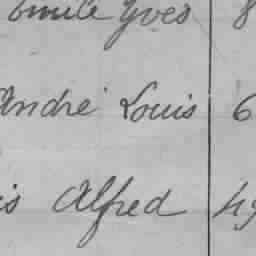 Emile Yves 8
André Louis 6
is Alfred 49